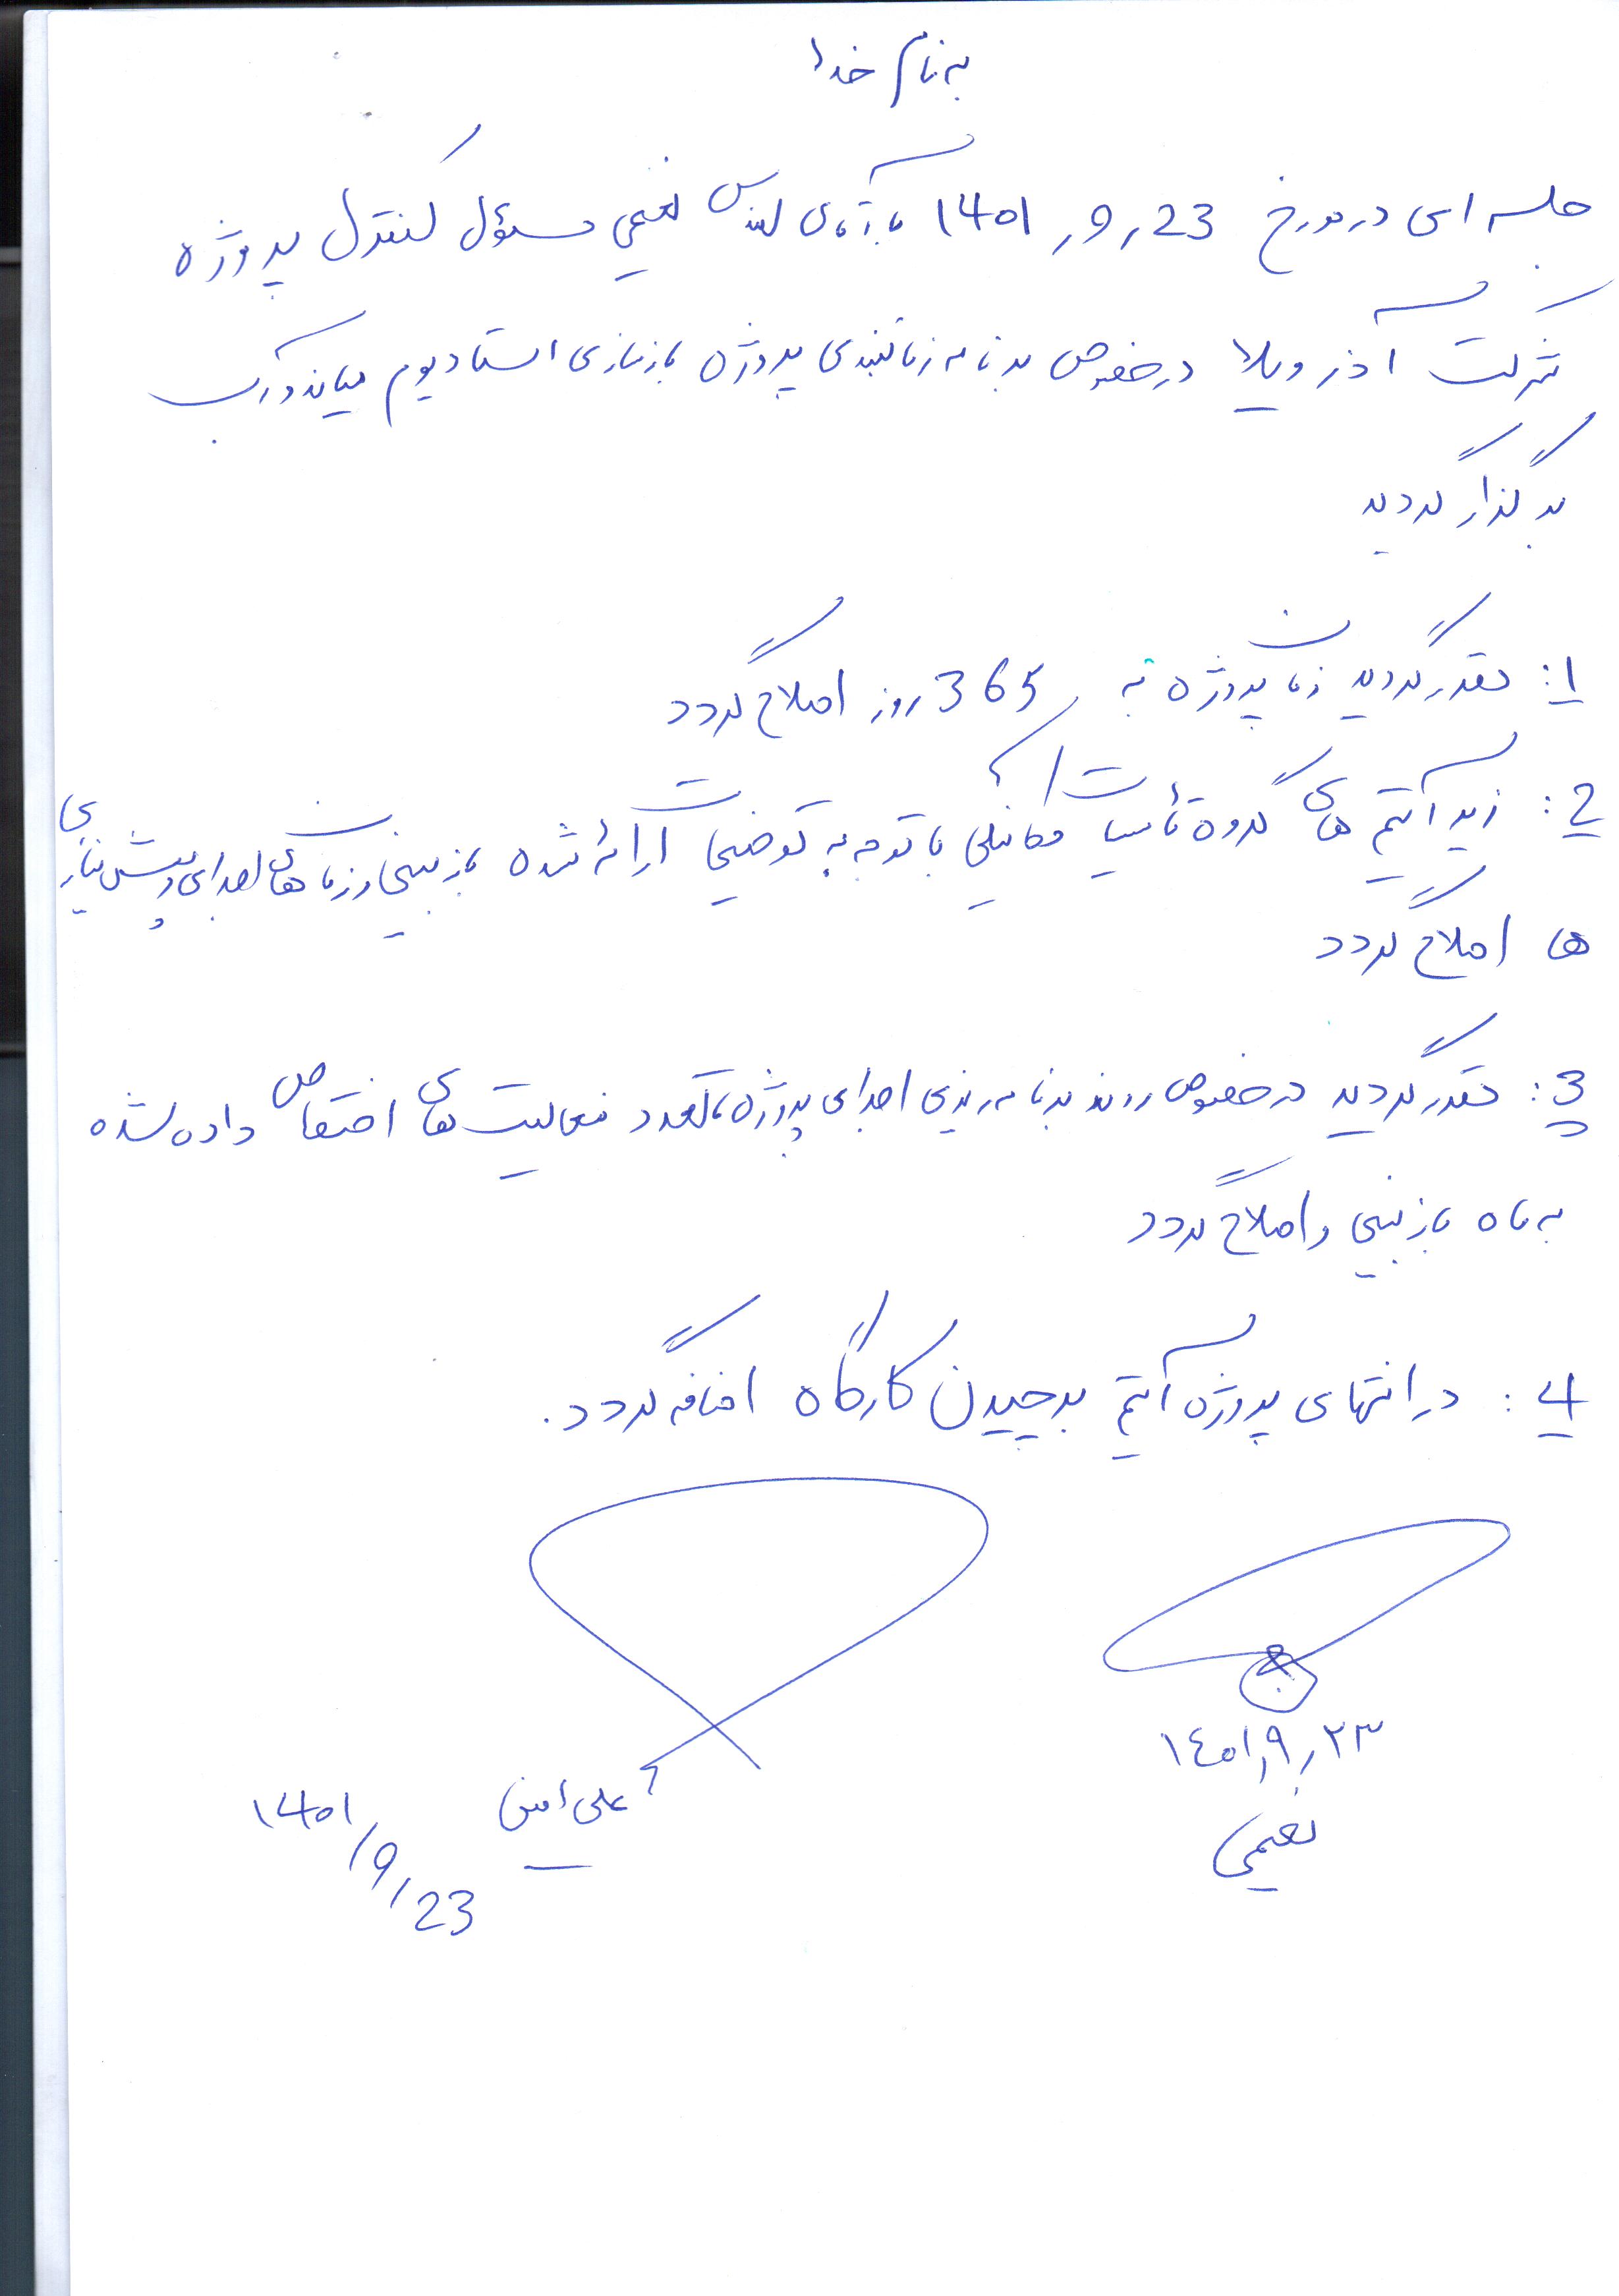 به نام خدا
جلسه ای در مورخ 1401,9,23 با آقای مهندس نعیمی مسؤل کنترل پروژه
شرکت آذر ویلا در خصوص برنامه زمانبندی پروژه بازسازی استادیوم میاندوآب
برگذار گردید
1: مقرر گردید زمان پروژه به 365 روز اصلاح گردد
2: زیر آیتم های گروه تأسیسات مکانیکی با توجه به توضیحات ارائه شده بازبینی و زمان های اجرای و پیش نیازی
ها اصلاح گردد
3: مقرر گردید در خصوص روند برنامه ریزی اجرای پروژه تعدد فعالیت های اختصاص داده شده
به ماه بازبینی و اصلاح گردد
4: در انتهای پروژه آیتم برچیدن کارگاه اضافه گردد.
۱٤۰۱,۹,۲۳
نعیمی
علی امین
1401/9/23